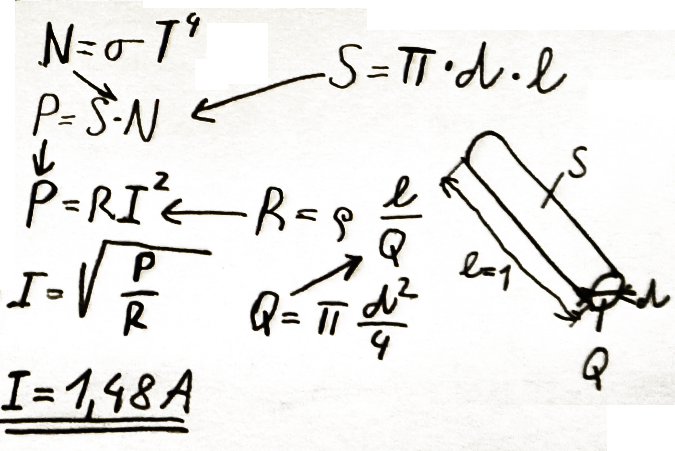 N=σT⁴
S=π·d·l
P=S·N
P=RI²
R=ρ l/Q
I=√(P/R)
Q=π d²/4
I=1,48A
S
l=1
d
Q